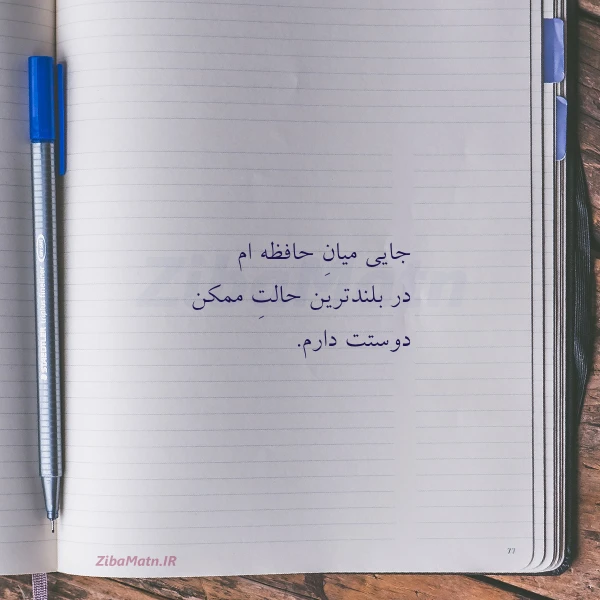 جایی میانِ حافظه ام
در بلندترین حالتِ ممکن
دوستت دارم.
ZibaMatn.IR